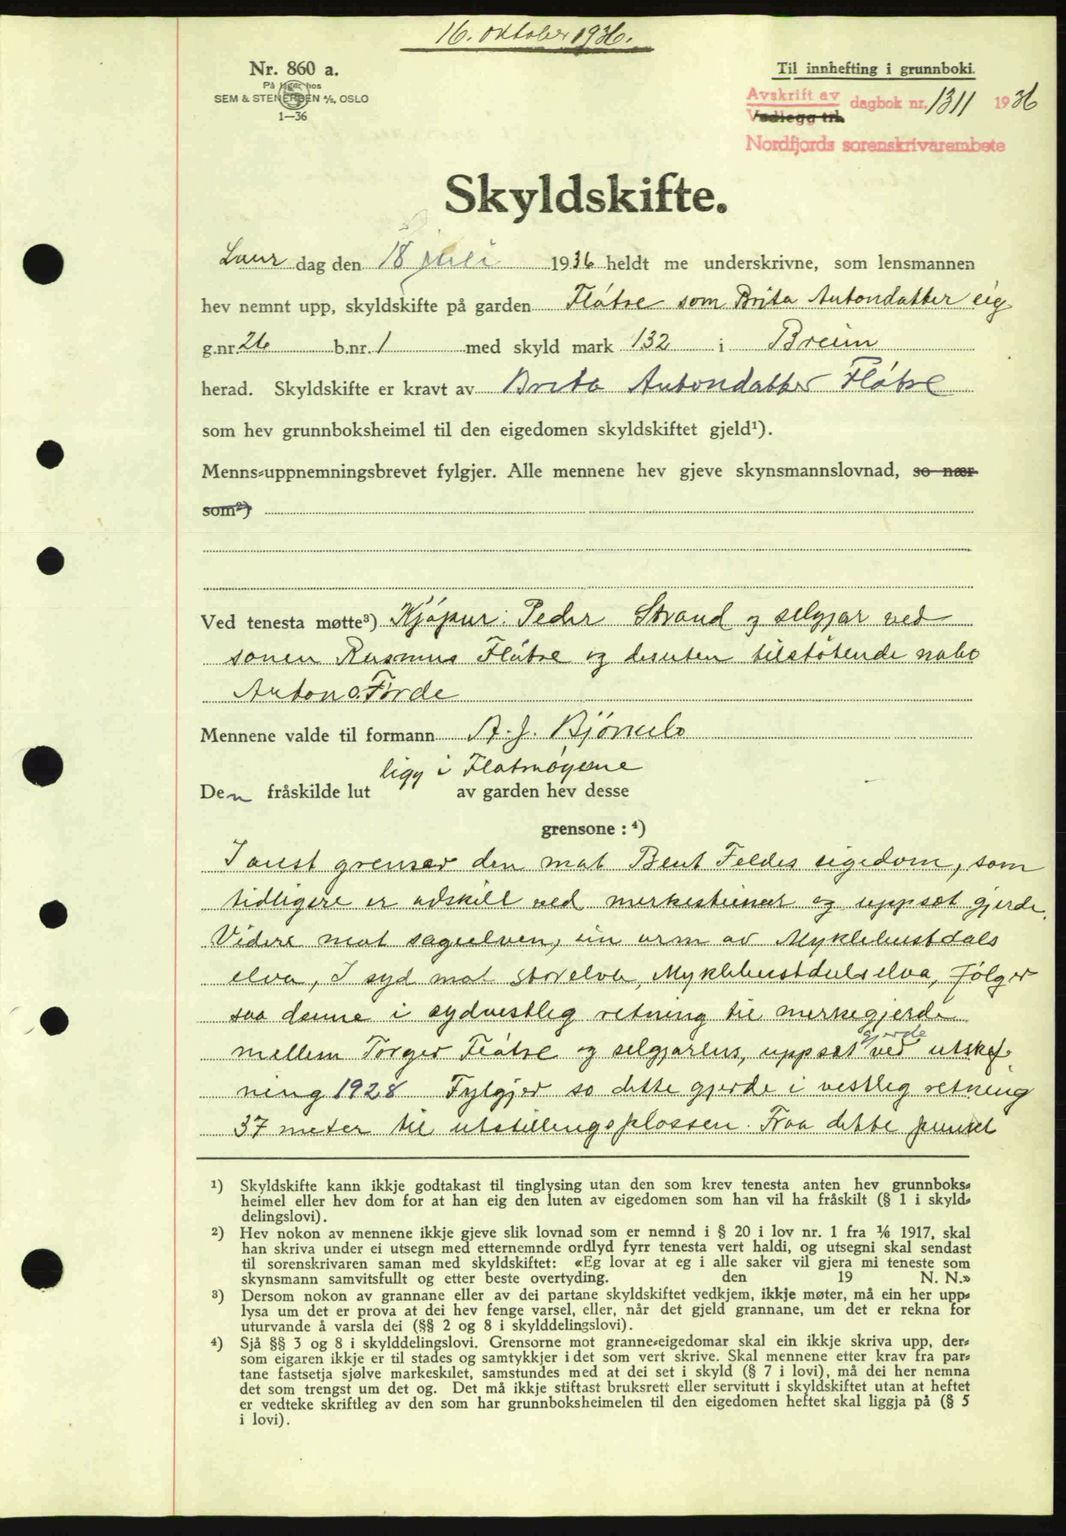 16. oktober 1936.
Nr. 860 a.
På lager hos
SEM & STENERSEN A/S, OSLO
1—36
Til innhefting i grunnboki.
Avskrift av
Vedlegg til
dagbok nr. 1311 1936
Nordfjords sorenskrivarembete
Skyldskifte.
Laur dag den 18 juli 1936 heldt me underskrivne, som lensmannen
hev nemnt upp, skyldskifte på garden Flótre som Brita Antondatter eig
g.nr. 26 b.nr. 1 med skyld mark 132 i Breim
herad. Skyldskifte er kravt av Brita Antondatter Flótre
som hev grunnboksheimel til den eigedomen skyldskiftet gjeld¹).
Menns-uppnemningsbrevet fylgjer. Alle mennene hev gjeve skynsmannslovnad, so nær
som²)
Ved tenesta møtte³) Kjópur: Peder Strand og selgjar ved
sonen Rasmus Flótre og desuten tilstótende nabo
Anton O. Førde
Mennene valde til formann A. J. Bjórkelo
Den fråskilde lut ligg i Flotmóyane av garden hev desse
grensone: ⁴)
I aust grenser den mot Bent Feldes eigedom, som
tidligere er adskilt ved merkesteinar og uppsat gjerde.
Videre mot sageelven, ein arm av Myklebustdals
elva, I syd mot storelva, Myklebustdalselva, fólger
saa denne i sydvestleg retning til merkegjerde
mellem Torger Flótre og selgjarens, uppsat gjerde ved utskif-
ning 1928 Fylgjer so dette gjerde i vestleg retning
37 meter til utstillingsplassen. Fraa dette punkt
¹) Skyldskifte kann ikkje godtakast til tinglysing utan den som krev tenesta anten hev grunnboks-
heimel eller hev dom for at han eig den luten av eigedomen som han vil ha fråskilt (§ 1 i skyld-
delingslovi).
²) Hev nokon av mennene ikkje gjeve slik lovnad som er nemnd i § 20 i lov nr. 1 fra 1/6 1917, skal
han skriva under ei utsegn med etternemnde ordlyd fyrr tenesta vert haldi, og utsegni skal sendast
til sorenskrivaren saman med skyldskiftet: «Eg lovar at eg i alle saker vil gjera mi teneste som
skynsmann samvitsfullt og etter beste overtyding. den 19 N. N.»
³) Dersom nokon av grannane eller av dei partane skyldskiftet vedkjem, ikkje møter, må ein her upp-
lysa um det er prova at dei hev fenge varsel, eller, når det gjeld grannane, um det er rekna for
uturvande å varsla dei (§§ 2 og 8 i skylddelingslovi).
⁴) Sjå §§ 3 og 8 i skylddelingslovi. Grensorne mot granne-eigedomar skal ein ikkje skriva upp, der-
som eigaren ikkje er til stades og samtykkjer i det som vert skrive. Skal mennene etter krav fra par-
tane fastsetja sjølve markeskilet, samstundes med at dei set i skyld (§ 7 i lovi), må dei her nemna
det som trengst um det og. Det må ikkje stiftast bruksrett eller servitutt i skyldskiftet utan at heftet
er vedteke skriftleg av den som har grunnboksheimelen til den eigedomen heftet skal liggja på (§ 5
i lovi).